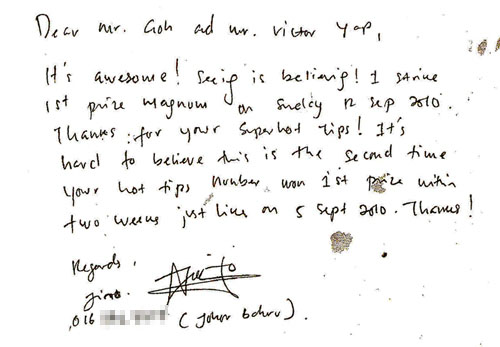 Dear Mr. Goh ad Mr. Victor Yap,
It's awesome! Seeig is believig! I strike
1st prize Magnum on Sunday 12 Sep 2010.
Thanks for your superhot tips! It's
hard to believe this is the second time
your hot tips number won 1st prize within
two weeks just like on 5 Sept 2010. Thanks!
Regards,
016
(Johor Bahru).